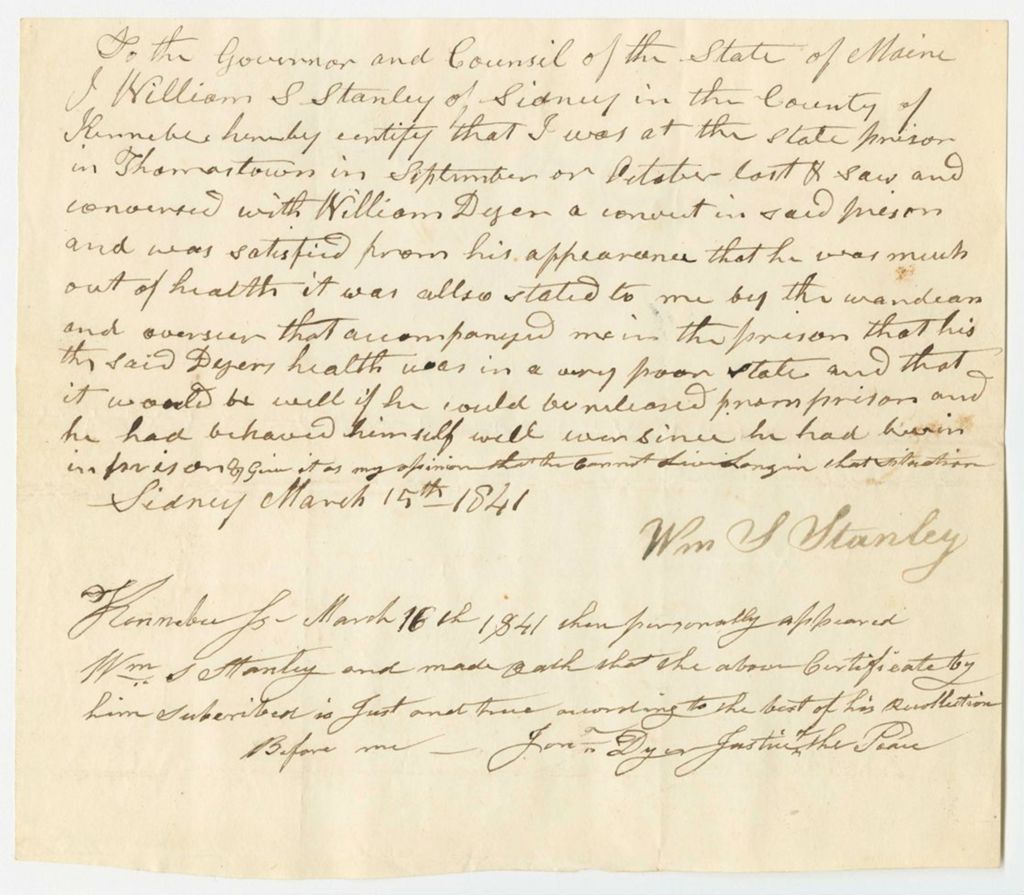 To the Governor and Counsil of the State of Maine
I William S Stanley of Sidney in the County of
Kennebec hereby certify that I was at the state prison
in Thomastown in September or October last & saw and
conversed with William Dyer a convict in said prison
and was satisfied from his appearance that he was much
out of health it was allso stated to me by the wardean
and overseer that accompanyed me in the prison that his
the said Dyers health was in a very poor state and that
it would be well if he could be released from prison and
he had behaved himself well ever since he had bewin
in prison & Give it as my opinion that he Cannot Live Long in that situation
Sidney March 15th 1841
Wm S Stanley
Kennebec Ss March 16th 1841 then personally appeared
Wm S Stanley and made oath that the above Certificate by
him subcribed is Just and true according to the best of his Recollection
Before me — Jonn Dyer Justice of the Peace